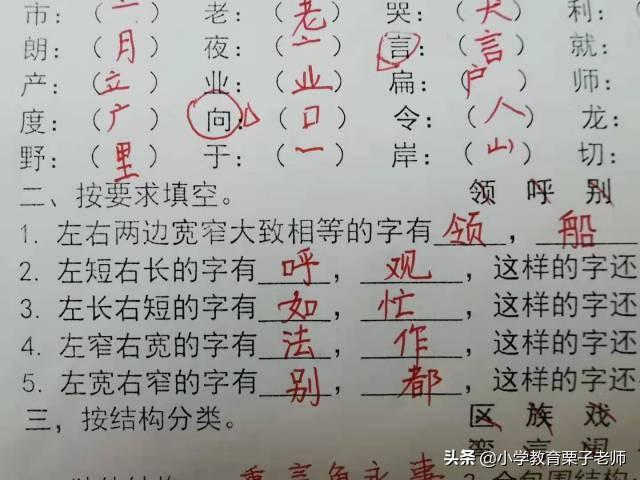 市：（亠） 老：（老） 哭：（犬） 利：
朗：（月） 夜：（亠） 言：（言） 就：
产：（立） 业：（业） 扁：（户） 师：
度：（广） 向：（口） 令：（人） 龙：
野：（里） 于：（一） 岸：（山） 切：
二、按要求填空。 领 呼 别
1. 左右两边宽窄大致相等的字有领，船
2. 左短右长的字有呼，观，这样的字还
3. 左长右短的字有如，忙，这样的字还
4. 左窄右宽的字有法，作，这样的字还
5. 左宽右窄的字有别，都，这样的字还
三，按结构分类。 区 族 戏
头条 @小学教育栗子老师